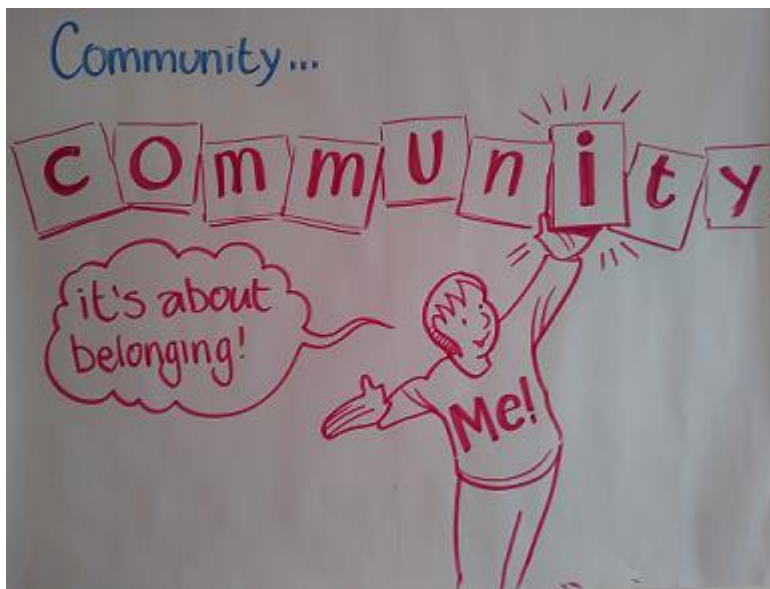 Community...
community
it's about
belonging!
Me!